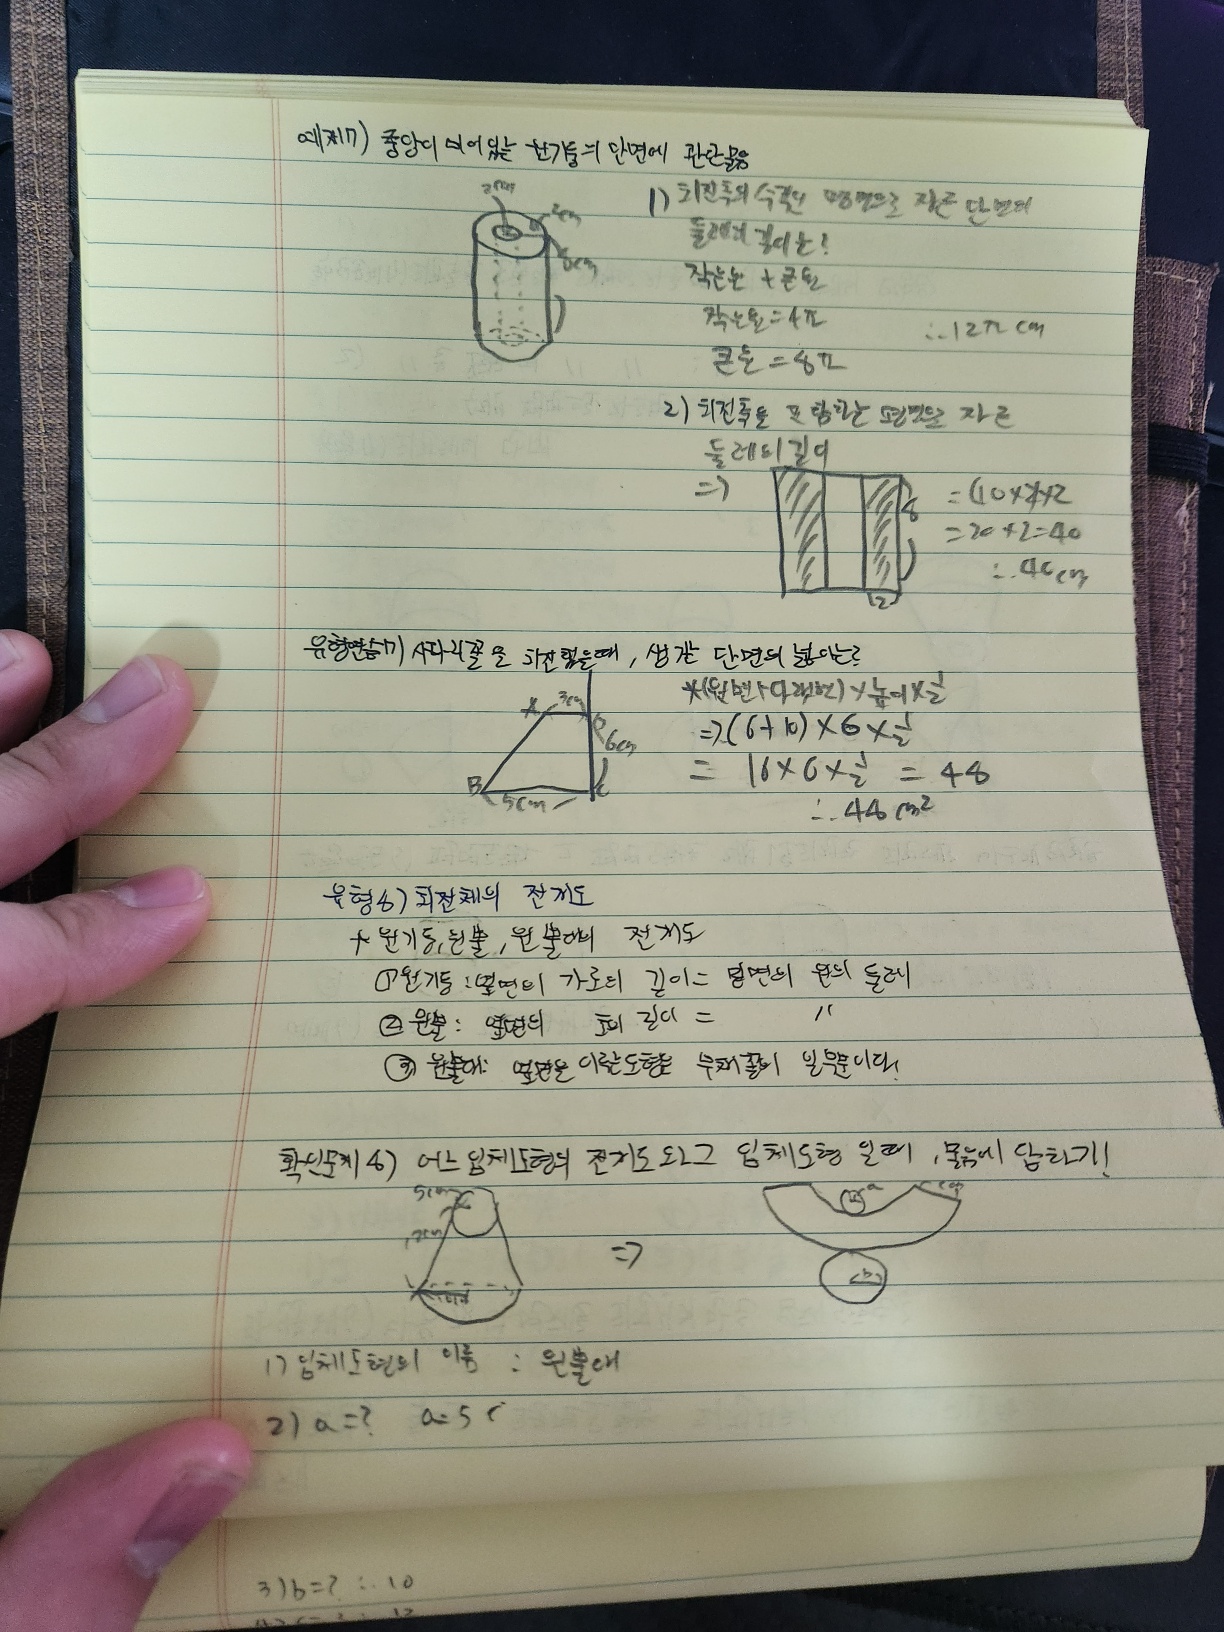 예제7) 중앙이 비어있는 원기둥의 단면에 관한 물음
2cm
2cm
8cm
1) 회전축의 수직인 평면으로 자른 단면의
둘레의 길이는?
작은원 + 큰원
작은원 = 4π
∴ 12π cm
큰원 = 8π
2) 회전축을 포함하는 평면으로 자른
둘레의 길이
=>
8
2
= (10×2)×2
= 20×2=40
∴ 40cm
유형연습7) 사다리꼴을 회전했을때, 생긴 단면의 넓이는?
A 3cm D
6cm
B 5cm C
*(윗변+아랫변)×높이×½
=> (6+10)×6×½
= 16×6×½ = 48
∴ 48cm²
유형8) 회전체의 전개도
* 원기둥, 원뿔, 원뿔대의 전개도
① 원기둥 : 옆면의 가로의 길이 = 밑면의 원의 둘레
② 원뿔 : 옆면의 호의 길이 = 〃
③ 원뿔대: 옆면을 이루는도형은 부채꼴의 일부분이다!
확인문제8) 어느 입체도형의 전개도와 그 입체도형 일때, 물음에 답하기!
5cm
12cm
=>
a
b
1) 입체도형의 이름 : 원뿔대
2) a=? a=5
3) b=? ∴ 10